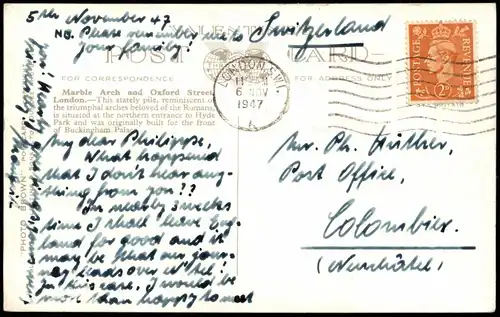 5th November 47
NB. Please remember me to
your family!
Switzerland
VALENTINE'S
POST CARD
FOR CORRESPONDENCE
FOR ADDRESS ONLY
Marble Arch and Oxford Street,
London.—This stately pile, reminiscent of
the triumphal arches beloved of the Romans,
is situated at the northern entrance to Hyde
Park and was originally built for the front
of Buckingham Palace.
LONDON. S.W.1.
6 NOV
1947
A
POSTAGE
REVENUE
2D
My dear Philippe,
What happened
that I don't hear any-
thing from you??
In nearly 3 weeks
time I shall leave Eng-
land for good and it
may be that our jour-
ney leads over N'tel!
In this case, I would be
more than happy to meet
you!
Mr. Ph. Huther,
Post Office,
Colombier.
(Neuchâtel)
"PHOTO BROWN" POSTCARD